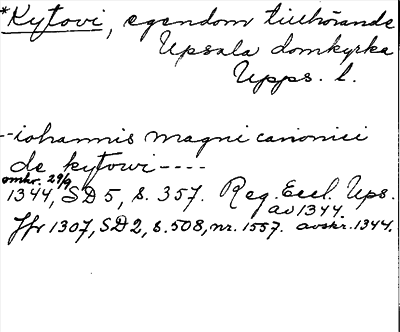 *Kytovi, egendom tillhörande
Upsala domkyrka
Upps. l.
--iohannis magni canonici
de kytowi----
omkr. 29/9
1344, SD 5, s. 357. Reg. Eccl. Ups.
av 1344.
Jfr 1307, SD 2, s. 508, nr. 1557. avskr. 1344.